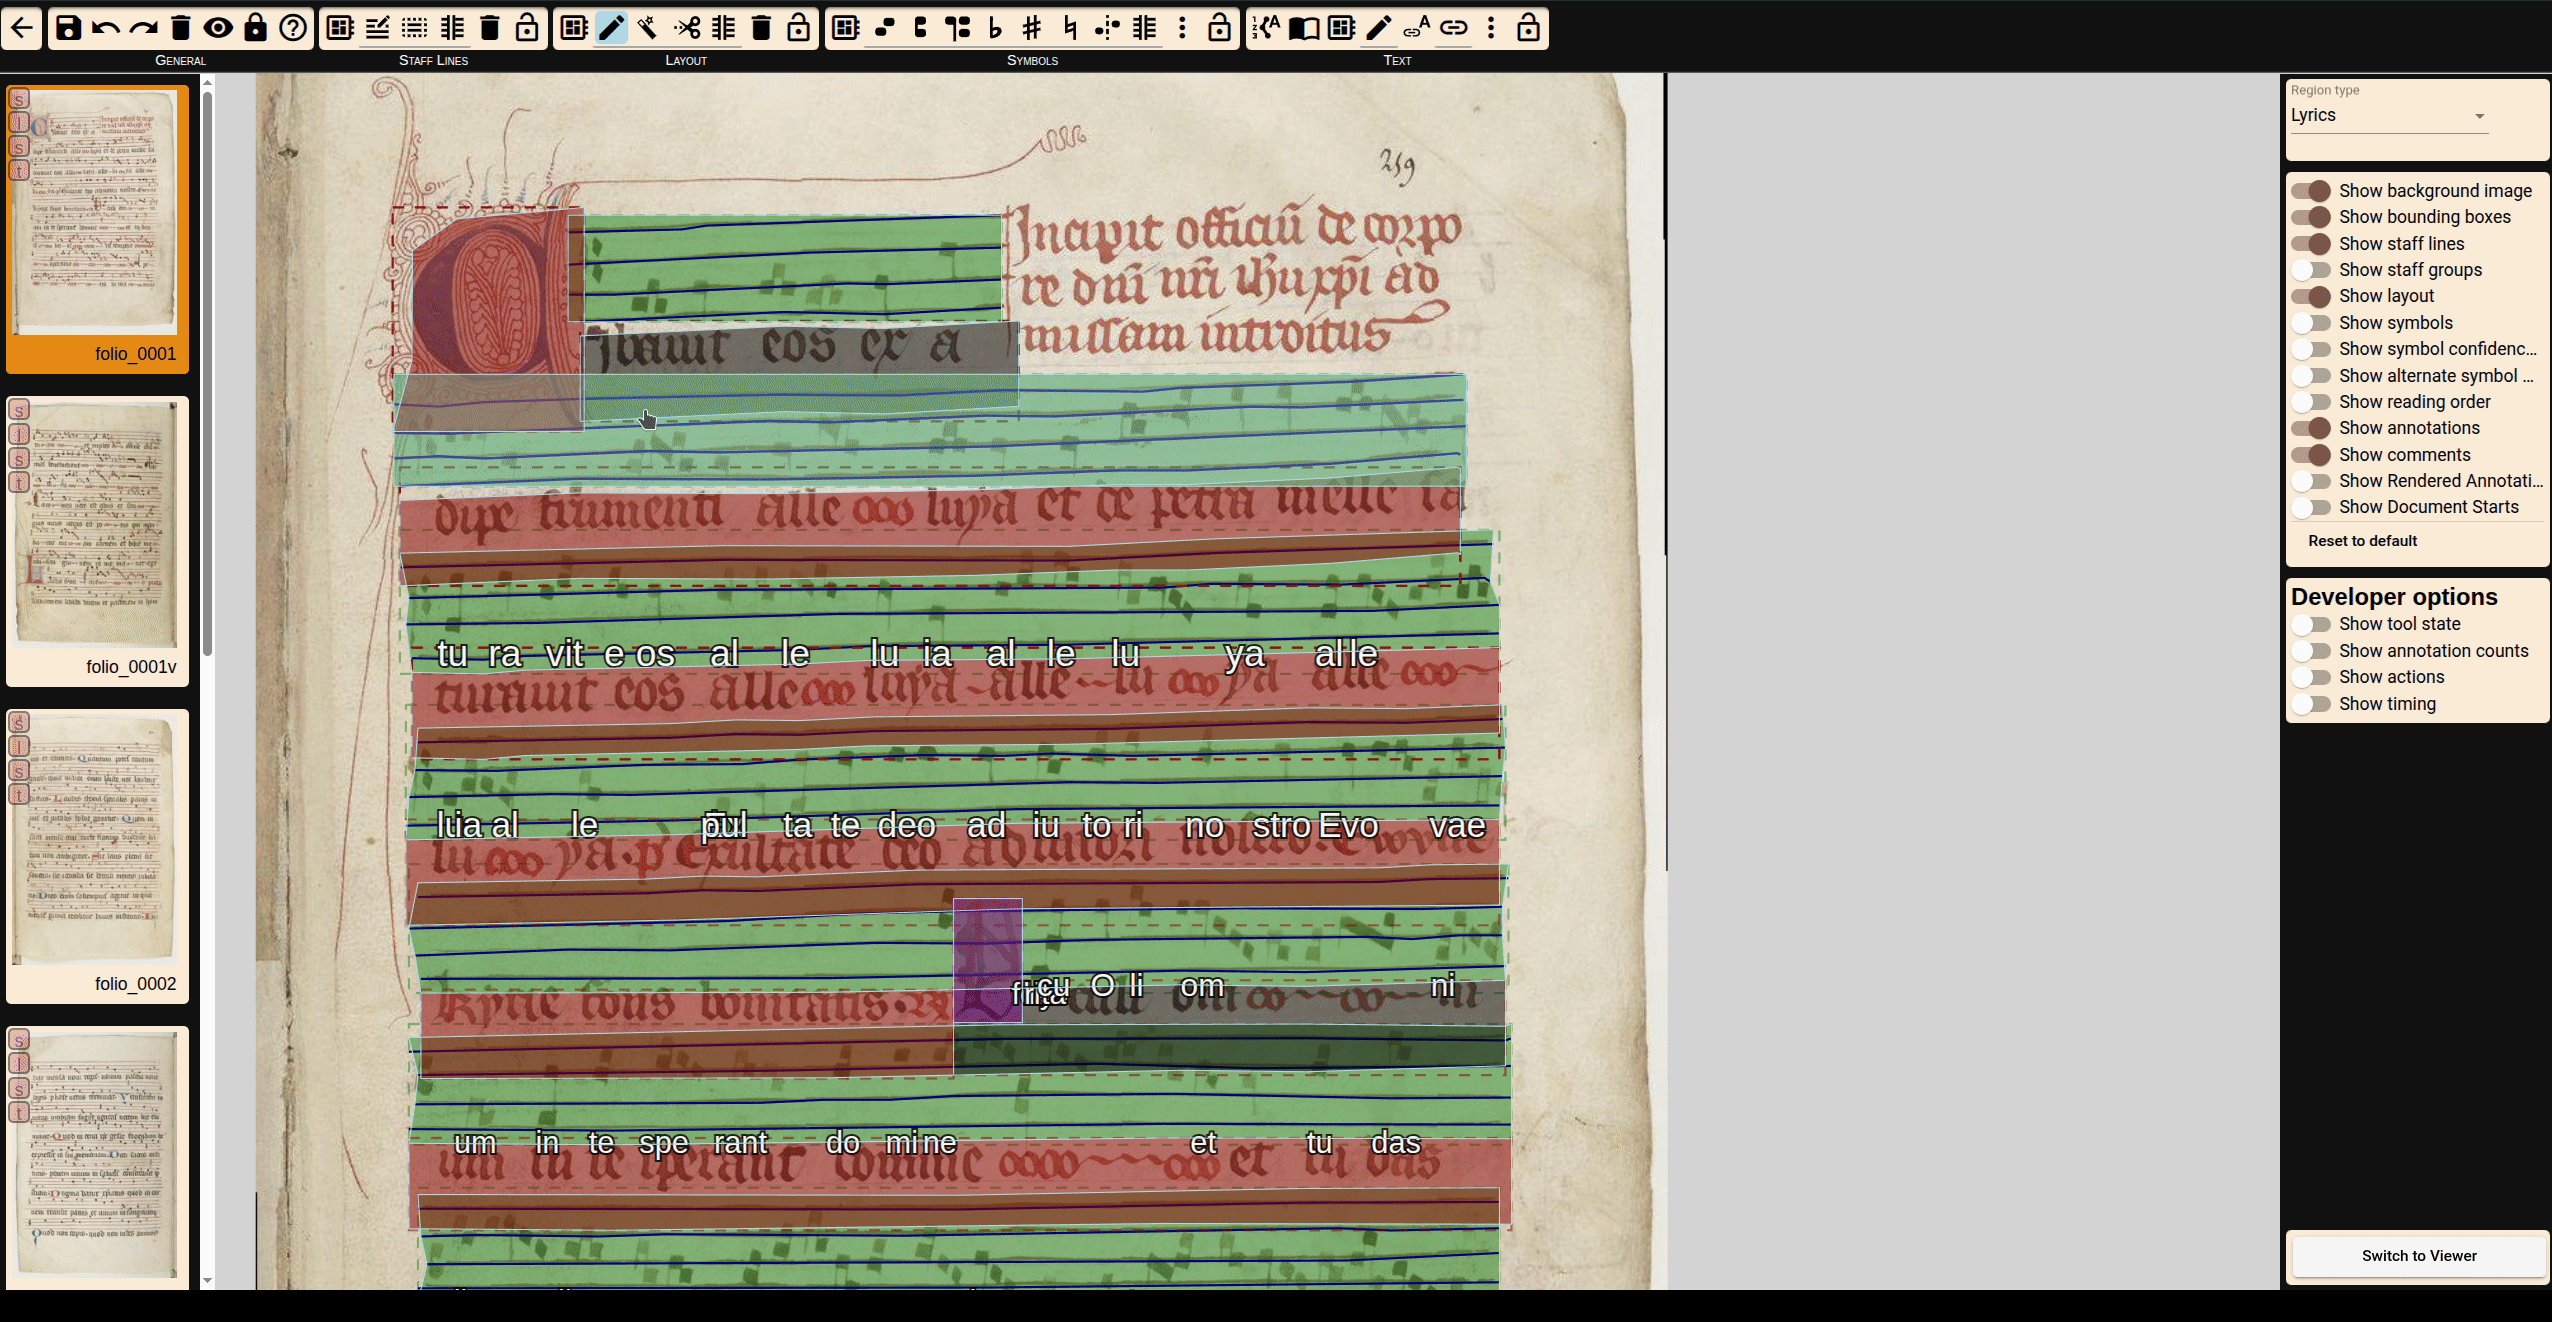 GENERAL
STAFF LINES
LAYOUT
SYMBOLS
TEXT
folio_0001
folio_0001v
folio_0002
259
Incipit officiū de corpo
re dn̄i nr̄i ihu xp̄i ad
missam introitus
ibauit eos ex a
dipe frumenti alle luya et de petra melle sa
tu ra vit e os al le lu ia al le lu ya al le
turauit eos alle luya alle lu ya alle
ltia al le pul ta te deo ad iu to ri no stro Evo vae
lu ya p Exultate deo adiutori nostro Evovae
cu O li om ni
Kyrie tons bonitatis
um in te spe rant do mi ne et tu das
um in te sperant domine et tu das
Region type
Lyrics
Show background image
Show bounding boxes
Show staff lines
Show staff groups
Show layout
Show symbols
Show symbol confidenc...
Show alternate symbol ...
Show reading order
Show annotations
Show comments
Show Rendered Annotati...
Show Document Starts
Reset to default
Developer options
Show tool state
Show annotation counts
Show actions
Show timing
Switch to Viewer